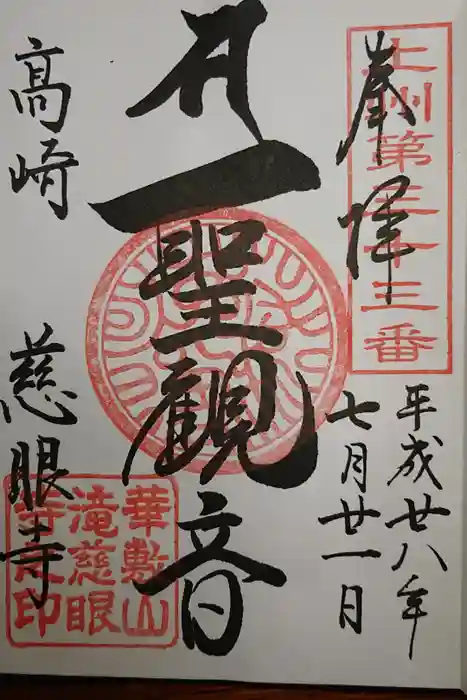 奉拝
上州第三十三番
平成廿八年
七月廿一日
聖観音
高崎 慈眼寺
華敷山
滝慈眼
寺之印